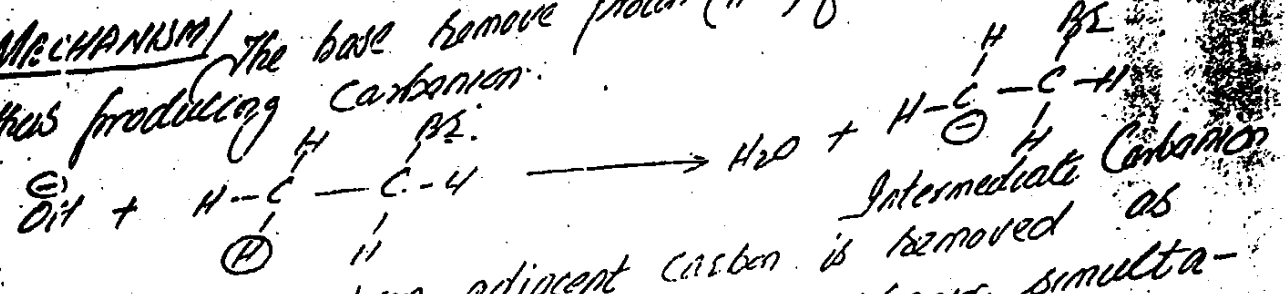 MECHANISM The base remove
thus producing Carbanion.
H Br. H Br
⊖
OH + H-C — C-H ⟶ H2O + H-C — C-H
⊖
H H H
Intermediate Carbanion
adjacent carbon is removed as
simulta-